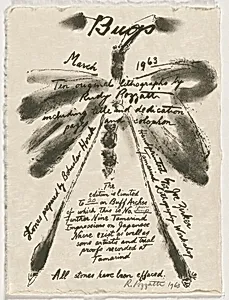 Bugs
March 1963
Ten original lithographs by
Rudy Pozzatti
including title and dedication
page and colophon
stones prepared by Bohuslav Horak
printed by Joe Zirker
Tamarind Lithography Workshop
The
edition is limited
to 20 on Buff Arches
of which this is No.
with Nine Tamarind
Impressions on Japanese
There exist as well as
some artists and trial
proofs recorded at
Tamarind
All stones have been effaced.
R. Pozzatti 1963